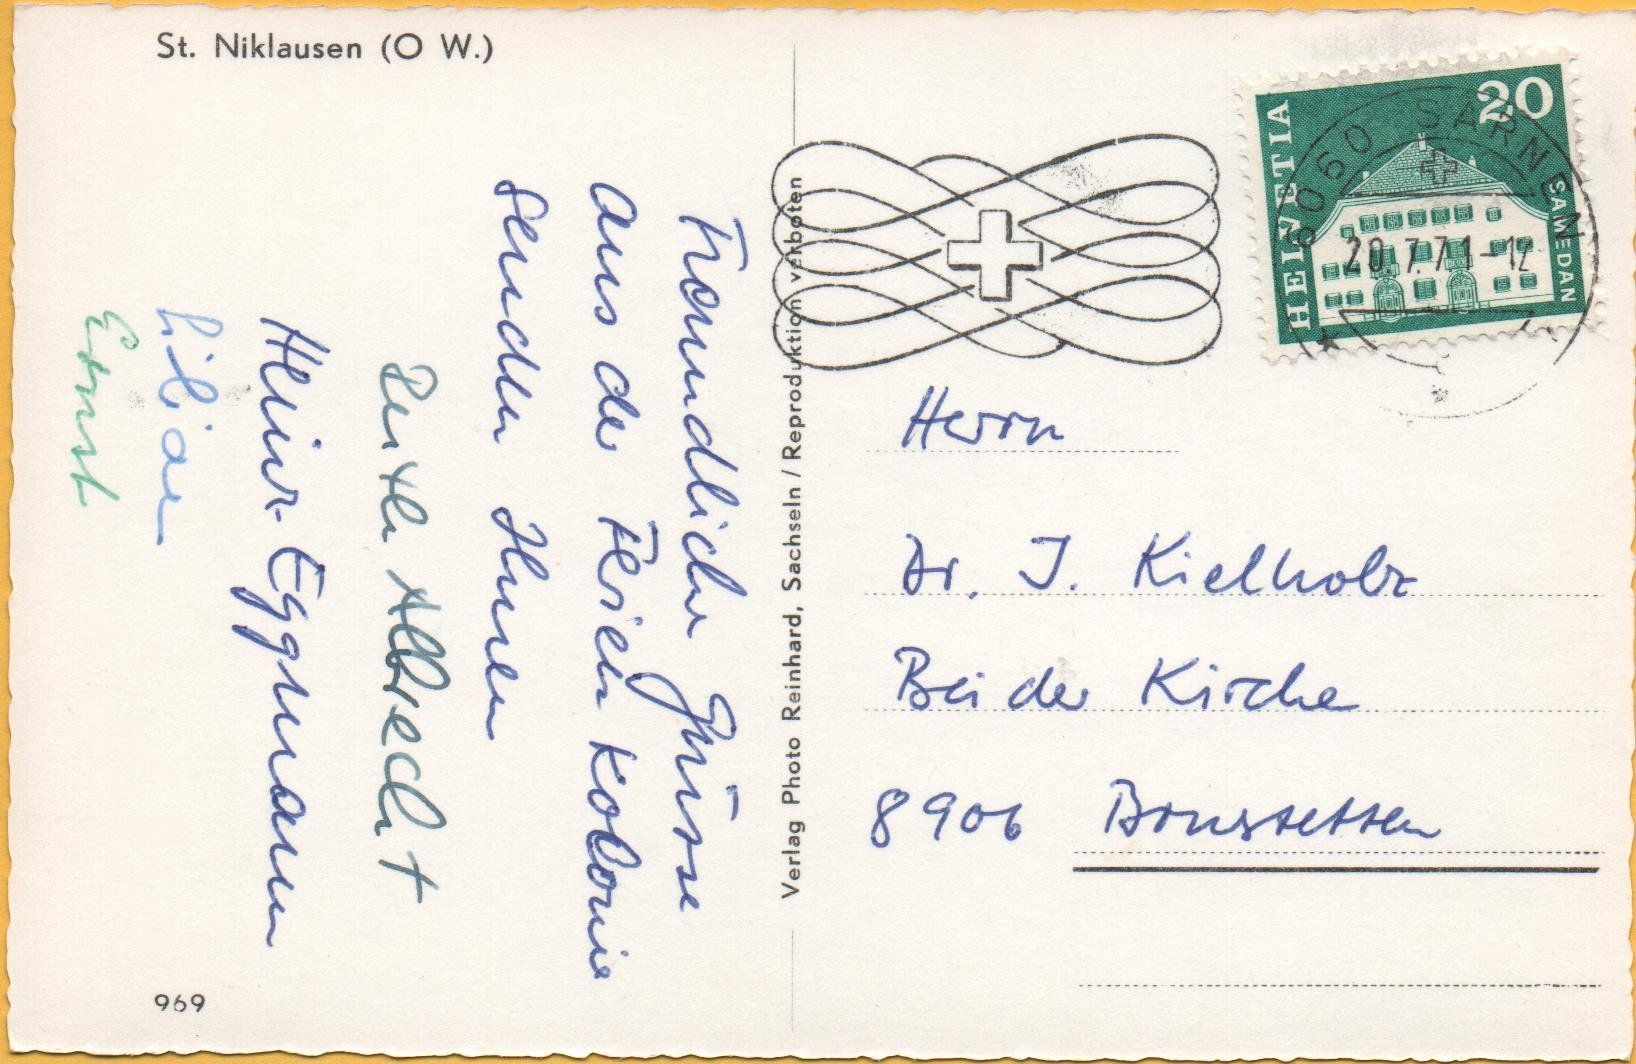 St. Niklausen (O W.)
Freundliche Grüsse
aus der Ferien Kolonie
senden Ihnen
Albrecht
Heinr. Eggmann
Lilian
Ernst
969
Verlag Photo Reinhard, Sachseln / Reproduktion verboten
HELVETIA
20
SAMEDAN
6060 SARNEN
20.7.71-12
Herrn
Dr. J. Kielholz
Bei der Kirche
8906 Bonstetten